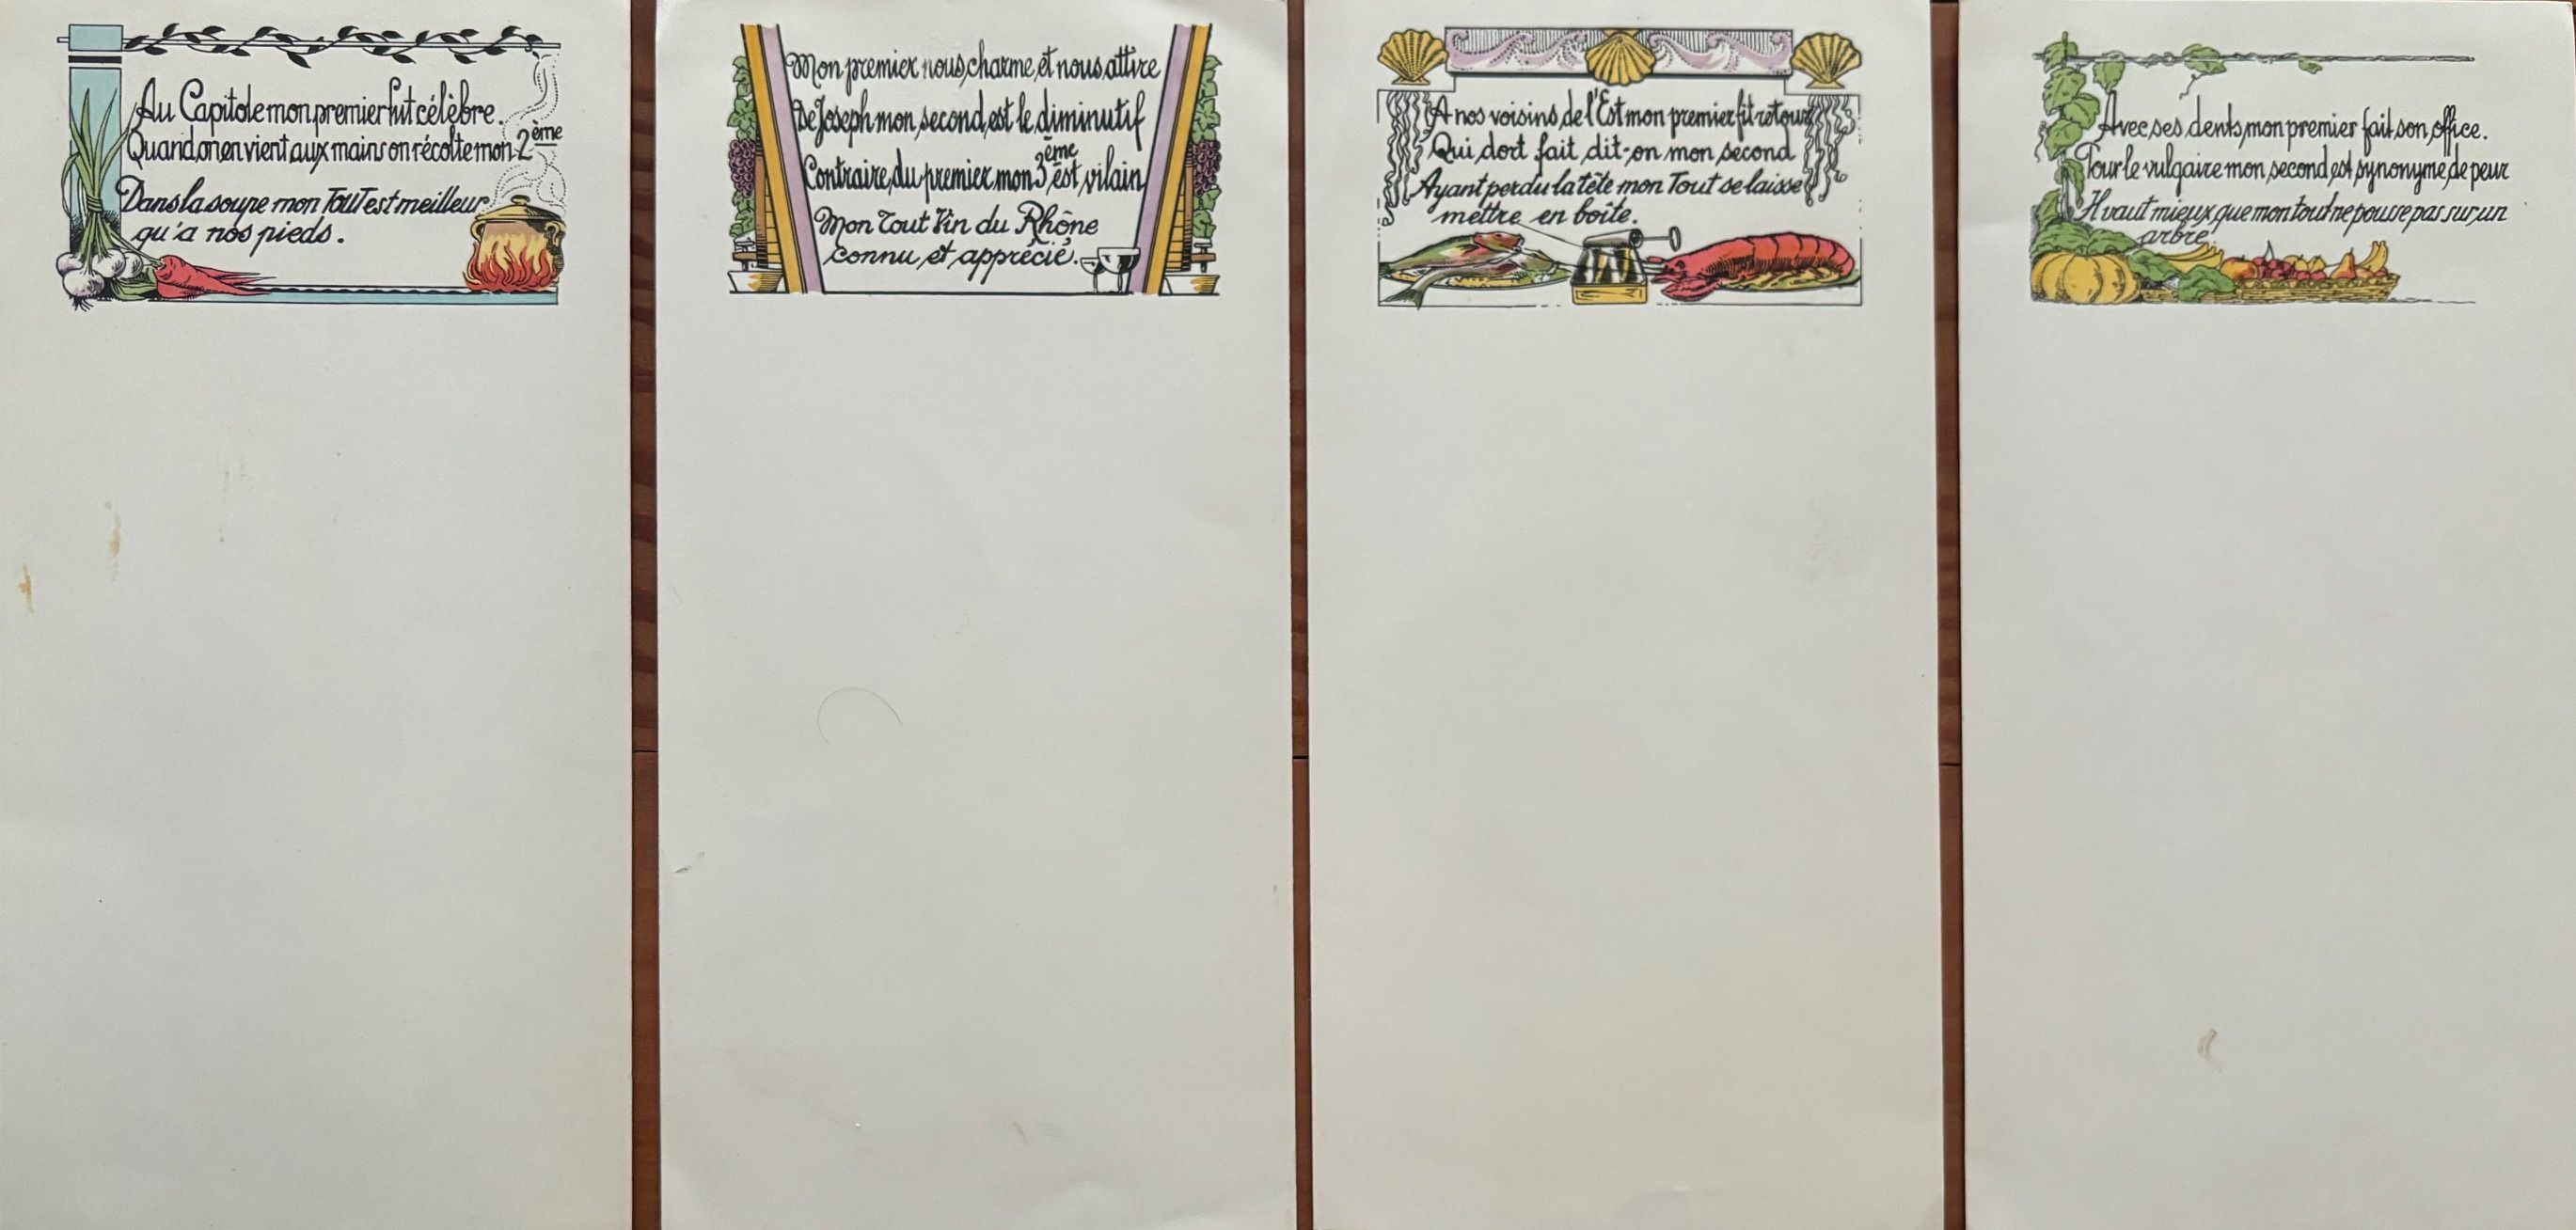 Au Capitole mon premier fut célèbre.
Quand on en vient aux mains on récolte mon 2ème
Dans la soupe mon Tout est meilleur
qu'a nos pieds.
Mon premier nous charme, et nous attire
De Joseph mon second est le diminutif
Contraire du premier mon 3ème est vilain
Mon Tout Vin du Rhône
connu et apprécié.
A nos voisins de l'Est mon premier fit retour
Qui dort fait dit-on mon second
Ayant perdu la tête mon Tout se laisse
mettre en boîte.
Avec ses dents mon premier fait son office.
Pour le vulgaire mon second est synonyme de peur
Il vaut mieux que mon tout ne pousse pas sur un
arbre.